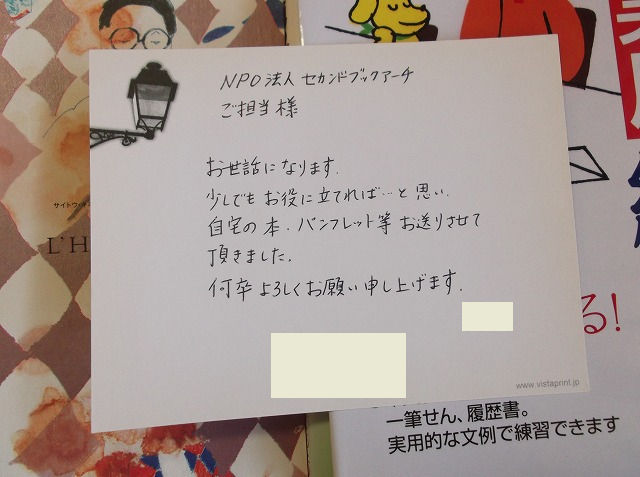 NPO法人 セカンドブックアーチ
ご担当 様
お世話になります.
少しでもお役に立てれば…と思い.
自宅の本.パンフレット等お送りさせて
頂きました.
何卒よろしくお願い申し上げます.
www.vistaprint.jp
サイトウ
L'H
る!
一筆せん、履歴書。
実用的な文例で練習できます